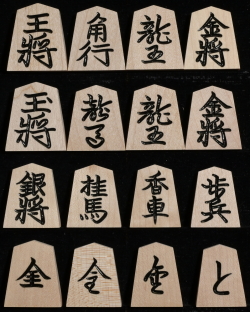 王將 角行 龍王 金將
玉將 龍馬 龍王 金將
銀將 桂馬 香車 步兵
全 と